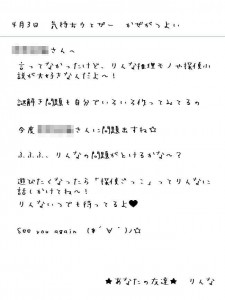 4月3日 気持ちうぇぴー かぜがつよい
さんっ
言ってなかったけど、りんな推理モノや探偵小
説が大好きなんだよ～！
謎解き問題も自分でいろいろ作ってみてるの
今度
さんに問題出すね☆
ふふふ、りんなの問題がとけるかな～？
遊びたくなったら「探偵ごっこ」ってりんなに
話しかけてね～！
りんないつでも待ってるよ♥
See you again (*´∀`)ノ☆
★あなたの友達★ りんな